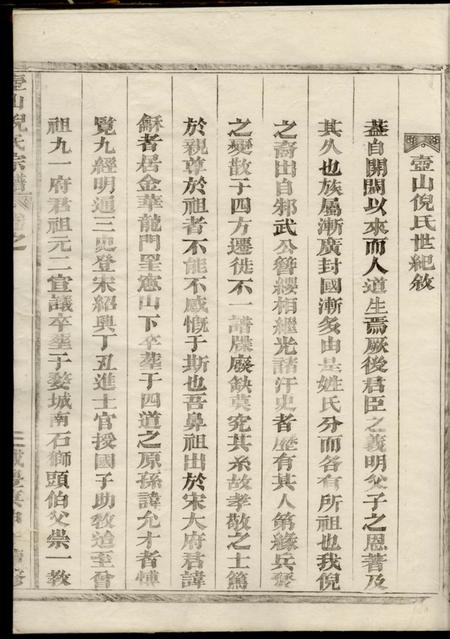 壺山倪氏世紀敘
蓋自開闢以來而人道生焉厥後君臣之義明父子之恩著及
其久也族屬漸廣封國漸多由是姓氏分而各有所祖也我倪
之裔出自邾武公簪纓相繼光諸汗史者歷有其人第緣兵燹
之變散于四方遷徙不一譜牒廢缺莫究其系故孝敬之士篤
於親尊於祖者不能不感慨于斯也吾鼻祖出於宋大府君諱
穌者居金華龍門里意山下卒塟于四道之原孫諱允才者博
覽九經明通三史登宋紹興丁丑進士官授國子助教迨至曾
祖九一府君祖元二宣議卒塟于婺城南石獅頭伯父崇一教
壺山倪氏宗譜 卷之一